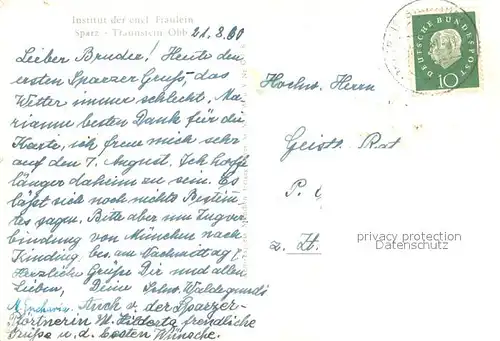 Institut der engl. Fräulein
Sparz - Traunstein Obb.
21.8.60
Lieber Bruder! Heute den
ersten Sparzer Gruß, das
Wetter immer schlecht. Ma-
rianne besten Dank für die
Karte, ich freue mich sehr
auf den 7. August. Ich hoffe
länger daheim zu sein. Es
läßt sich noch nichts Bestim-
tes sagen. Bitte aber um Zugver-
bindung von München nach
Kinding, bes. am Nachmittag.
Herzliche Grüße Dir und allen
Lieben, Deine Schw. Waldegundis
Auch v. der Sparzer-
Pförtnerin M. freundliche
Grüße u. d. besten Wünsche.
Hochw. Herrn
Geistl. Rat
P.
z. Zt.
DEUTSCHE BUNDESPOST
10
privacy protection
Datenschutz